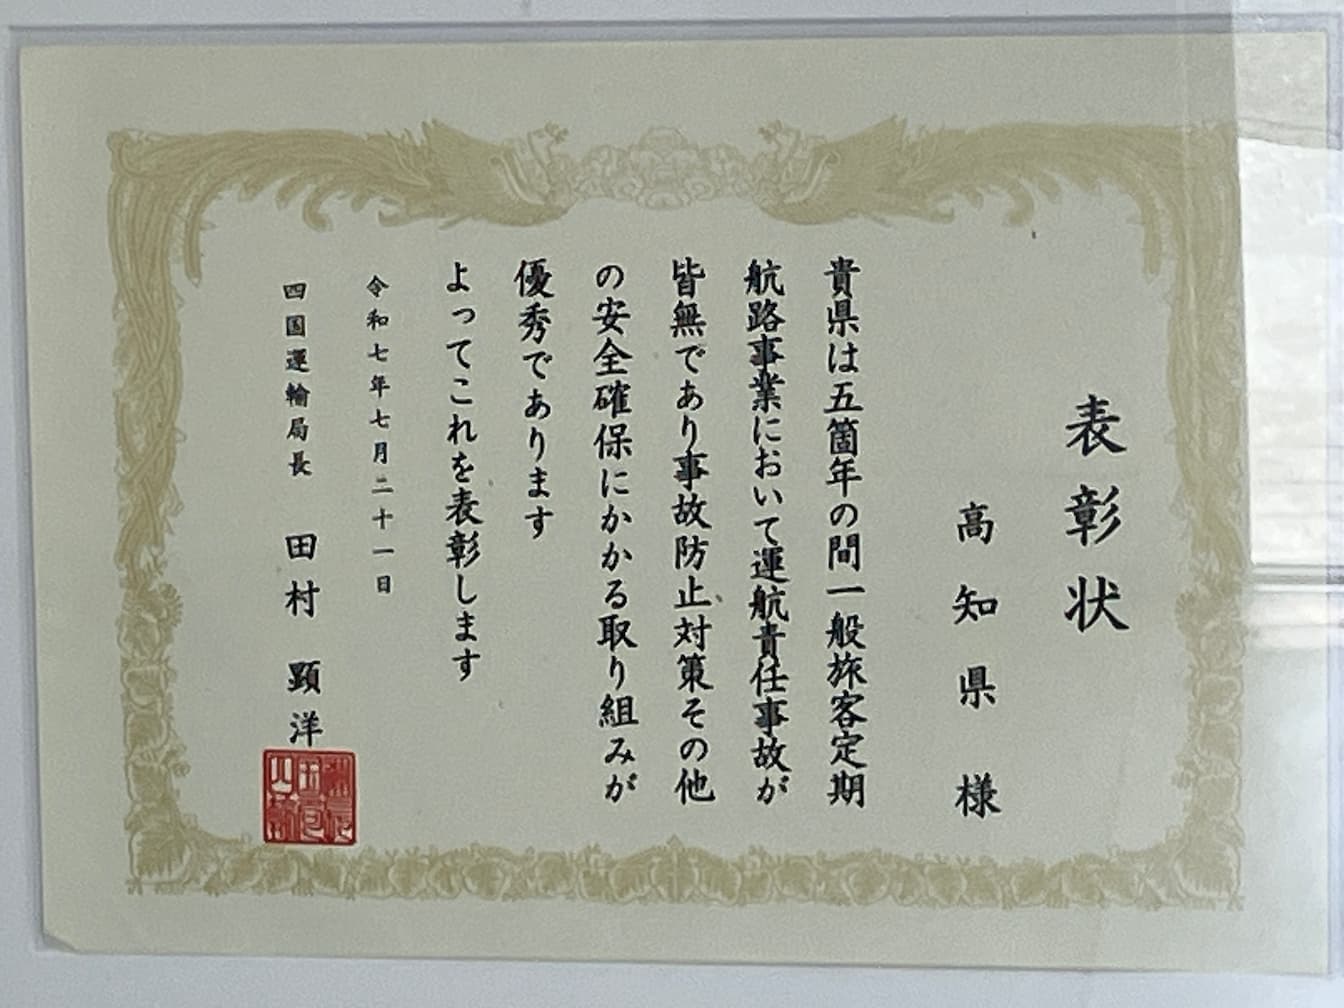 表彰状
高知県様
貴県は五箇年の間一般旅客定期
航路事業において運航責任事故が
皆無であり事故防止対策その他
の安全確保にかかる取り組みが
優秀であります
よってこれを表彰します
令和七年七月二十一日
四国運輸局長 田村 顕洋